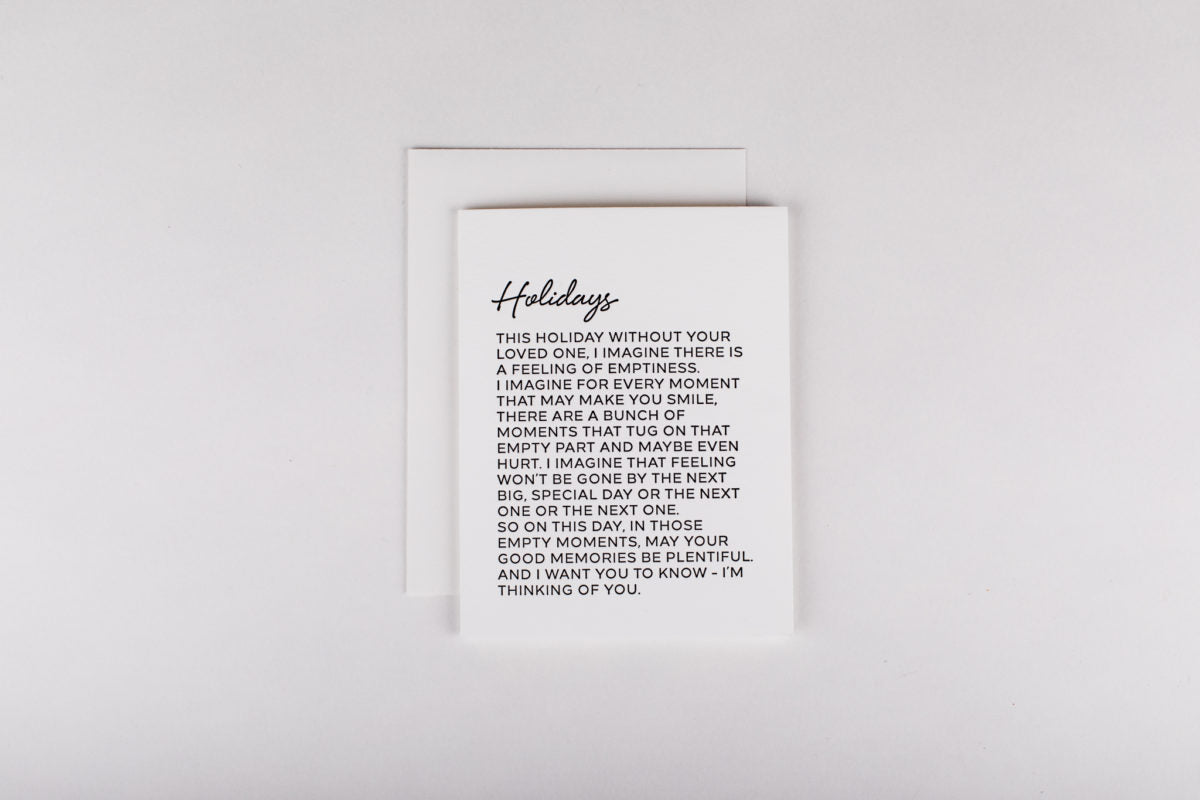 Holidays
THIS HOLIDAY WITHOUT YOUR
LOVED ONE, I IMAGINE THERE IS
A FEELING OF EMPTINESS.
I IMAGINE FOR EVERY MOMENT
THAT MAY MAKE YOU SMILE,
THERE ARE A BUNCH OF
MOMENTS THAT TUG ON THAT
EMPTY PART AND MAYBE EVEN
HURT. I IMAGINE THAT FEELING
WON'T BE GONE BY THE NEXT
BIG, SPECIAL DAY OR THE NEXT
ONE OR THE NEXT ONE.
SO ON THIS DAY, IN THOSE
EMPTY MOMENTS, MAY YOUR
GOOD MEMORIES BE PLENTIFUL.
AND I WANT YOU TO KNOW - I'M
THINKING OF YOU.